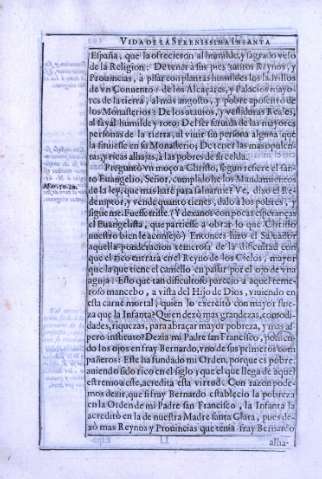 VIDA DE LA SERENISSIMA INFANTA
España, que la ofrecieron al humilde, y sagrado velo
de la Religion: De tener a sus pies tantos Reynos, y
Prouincias, à pisar con plantas humildes los ladrillos
de vn Conuento: de los Alcaçares, y palacios mayo-
res de la tierra, al mas angosto, y pobre aposento de
los Monasterios: De los atauios, y vestiduras Reales,
al sayal humilde y roto: Del ser seruida de las mayores
personas de la tierra, al viuir sin persona alguna que
la siruiesse en su Monasterio; De tener las mas opulen-
tas, y ricas alhajas, à las pobres de su celda.
Preguntò vn moço a Christo, segun refiere el san-
to Euangelio, Señor, cumplido he los Mandamientos
de la ley, que mas harè para saluarme? Ve, dixo el Re-
demptor, y vende quanto tienes, dalo à los pobres, y
sigueme. Fuesse triste (Y dexanos con pocas esperanças
el Euangelista, que
nuestro bien le aconsejò) Entonces hizo el Saluador
aquella ponderacion temerosa de la dificultad con
que el rico entraria en el Reyno de los Cielos, mayor
que la que tiene el camello en passar por el ojo de vna
aguja: Esto que tan dificultoso pareció a aquel teme-
roso mancebo, a vista del Hijo de Dios, viuiendo en
esta carne mortal, quien lo exercitò con mayor fine-
za que la Infanta? Quien dexò mas grandezas, comodi-
dades, riquezas, para abraçar mayor pobreza, y mas as-
pero instituto? Dezia mi Padre san Francisco, ponien-
do los ojos en fray Bernardo, vno de sus primeros com-
pañeros: Este ha fundado mi Orden, porque es pobre,
auiendo sido rico en el siglo y que el que llega de aquel
estremo a este, acredita esta virtud. Con razon pode-
mos dezir, que si fray Bernardo establecio la pobreza
en la Orden de mi Padre san Francisco, la Infanta la
acreditò en la de nuestra Madre santa Clara, pues de-
xò mas Reynos y Prouincias que tenia fray Bernardo
alha-